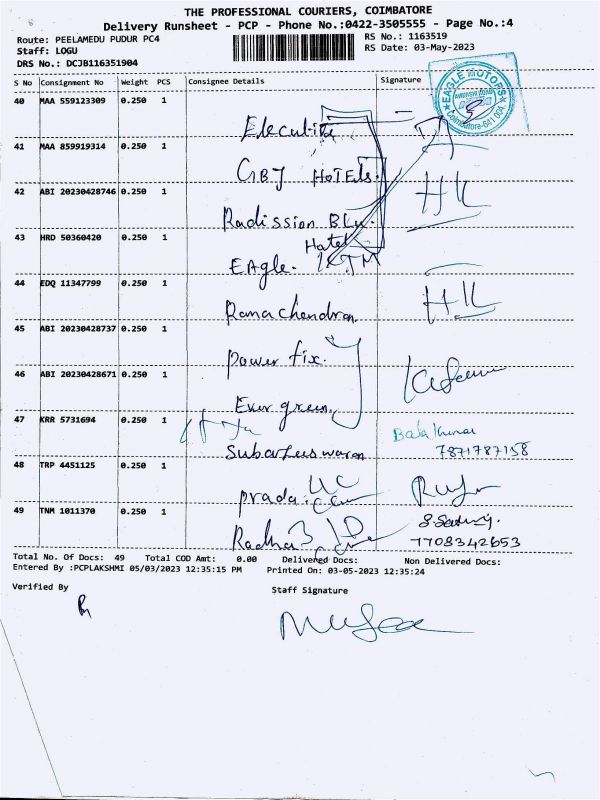 THE PROFESSIONAL COURIERS, COIMBATORE
Delivery Runsheet - PCP - Phone No.:0422-3505555 - Page No.:4
Route: PEELAMEDU PUDUR PC4 RS No.: 1163519
Staff: LOGU RS Date: 03-May-2023
DRS No.: DCJB116351904
S No Consignment No Weight PCS Consignee Details Signature
EAGLE MOTORS
Coimbatore-641 004.
40 MAA 559123309 0.250 1
41 MAA 859919314 0.250 1 GBJ HOTELS.
42 ABI 20230428746 0.250 1 Radission Blu.
Hotel
43 HRD 50360420 0.250 1 EAgle. KTM
44 EDQ 11347799 0.250 1 Ramachendran
45 ABI 20230428737 0.250 1 power fix.
46 ABI 20230428671 0.250 1 Ever green.
47 KRR 5731694 0.250 1 Bala Kumar
7871787158
48 TRP 4451125 0.250 1 prada.
49 TNM 1011370 0.250 1 Radha
7708342653
Total No. Of Docs: 49 Total COD Amt: 0.00 Delivered Docs: Non Delivered Docs:
Entered By :PCPLAKSHMI 05/03/2023 12:35:15 PM Printed On: 03-05-2023 12:35:24
Verified By Staff Signature